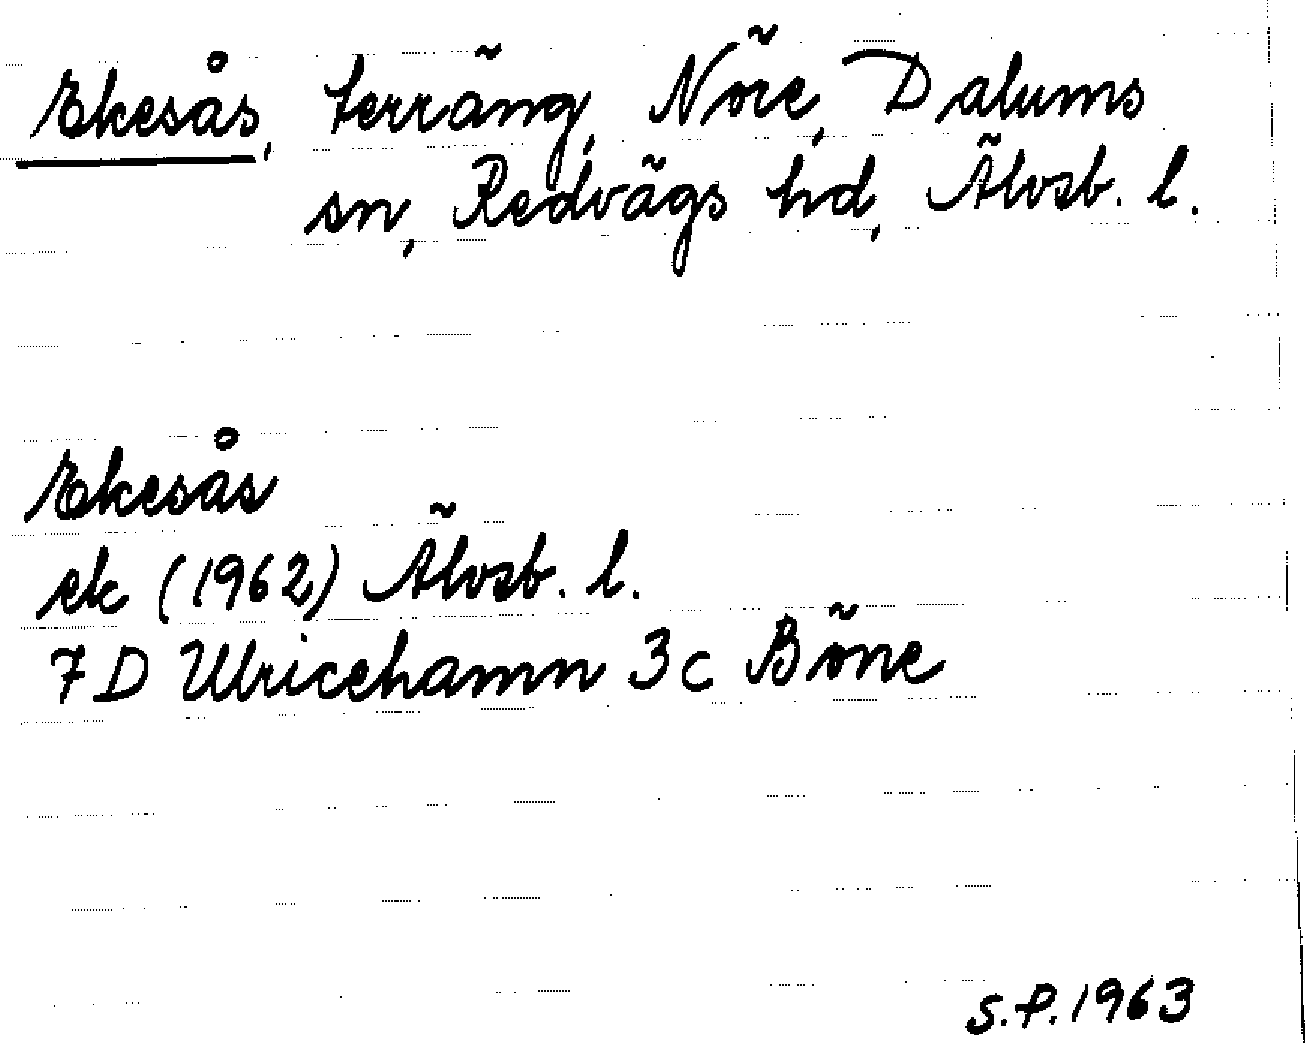 Ekesås, terräng, Nöre, Dalums
sn, Redvägs hd, Älvsb. l.
Ekesås
ek (1962) Älvsb. l.
7D Ulricehamn 3c Böne
S.P. 1963